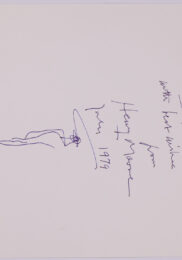 with best wishes
from
Henry Moore
1979